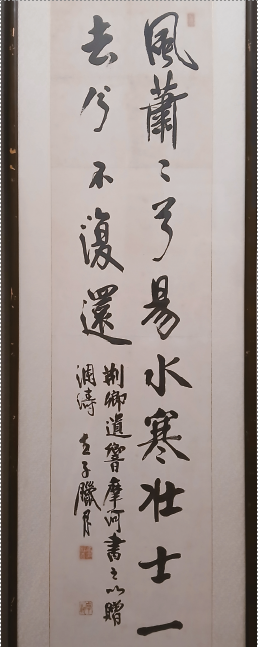 風蕭〻兮易水寒壯士一
去兮不復還
荆卿遺響摩河書之以贈
潤濤 壬子臘月